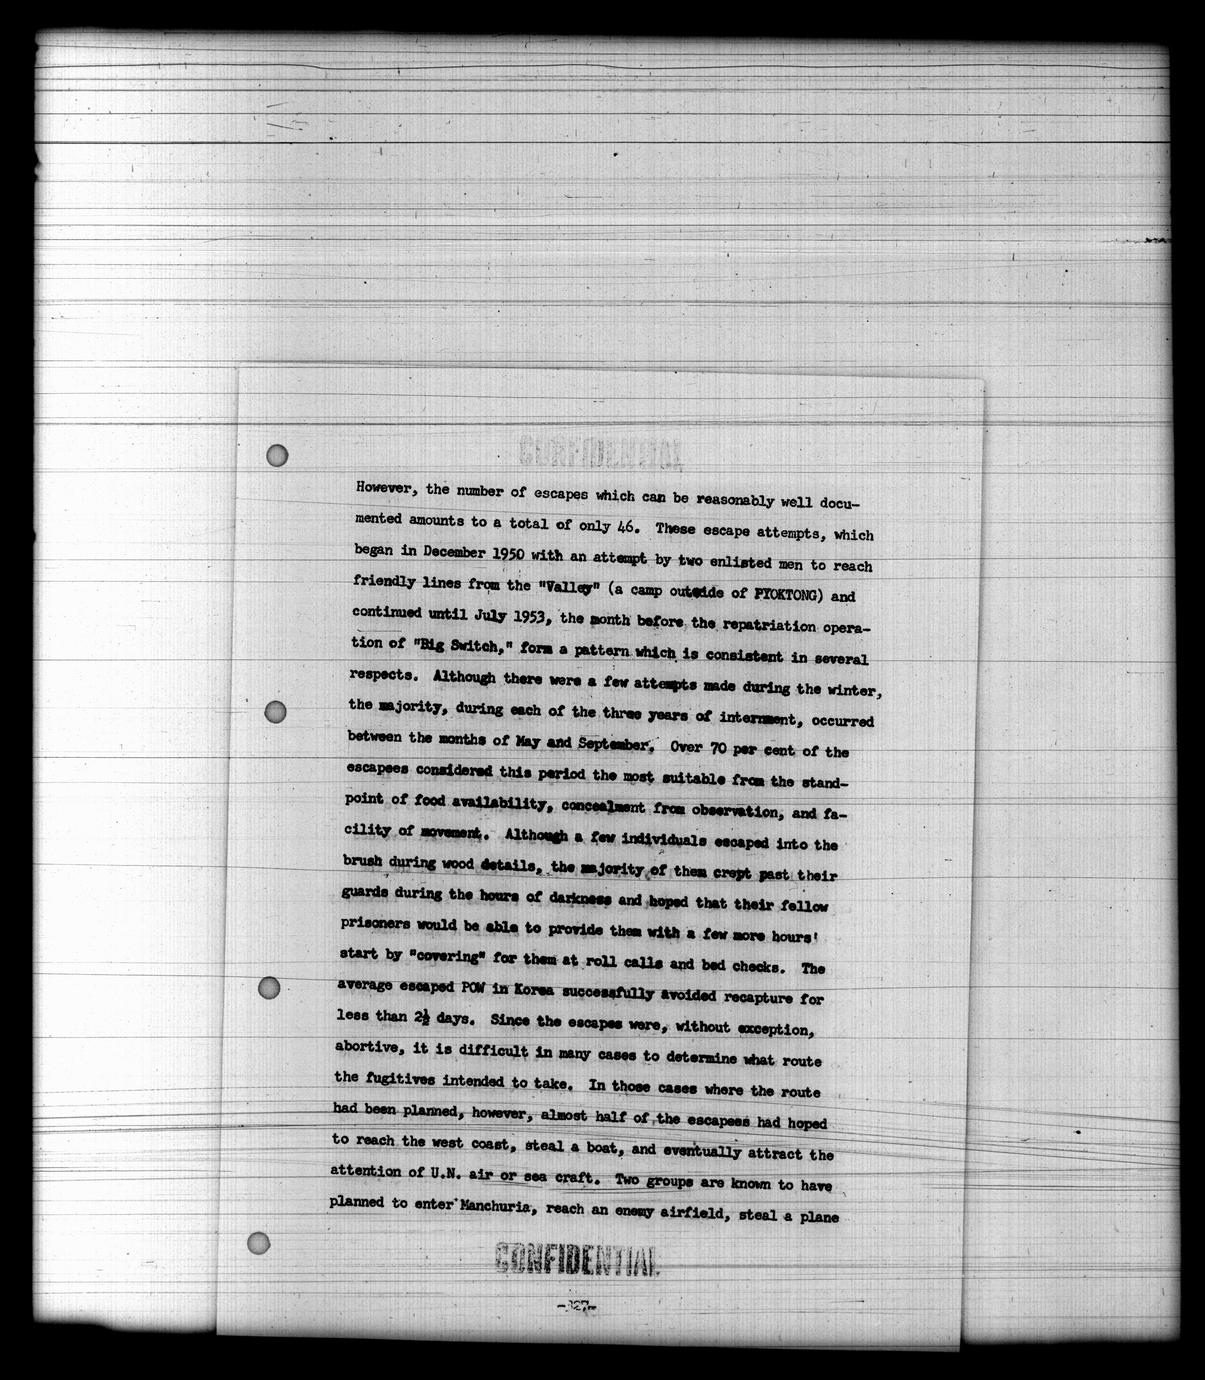 CONFIDENTIAL
However, the number of escapes which can be reasonably well docu-
mented amounts to a total of only 46. These escape attempts, which
began in December 1950 with an attempt by two enlisted men to reach
friendly lines from the "Valley" (a camp outside of PYOKTONG) and
continued until July 1953, the month before the repatriation opera-
tion of "Big Switch," form a pattern which is consistent in several
respects. Although there were a few attempts made during the winter,
the majority, during each of the three years of internment, occurred
between the months of May and September. Over 70 per cent of the
escapees considered this period the most suitable from the stand-
point of food availability, concealment from observation, and fa-
cility of movement. Although a few individuals escaped into the
brush during wood details, the majority of them crept past their
guards during the hours of darkness and hoped that their fellow
prisoners would be able to provide them with a few more hours'
start by "covering" for them at roll calls and bed checks. The
average escaped POW in Korea successfully avoided recapture for
less than 2½ days. Since the escapes were, without exception,
abortive, it is difficult in many cases to determine what route
the fugitives intended to take. In those cases where the route
had been planned, however, almost half of the escapees had hoped
to reach the west coast, steal a boat, and eventually attract the
attention of U.N. air or sea craft. Two groups are known to have
planned to enter Manchuria, reach an enemy airfield, steal a plane
CONFIDENTIAL